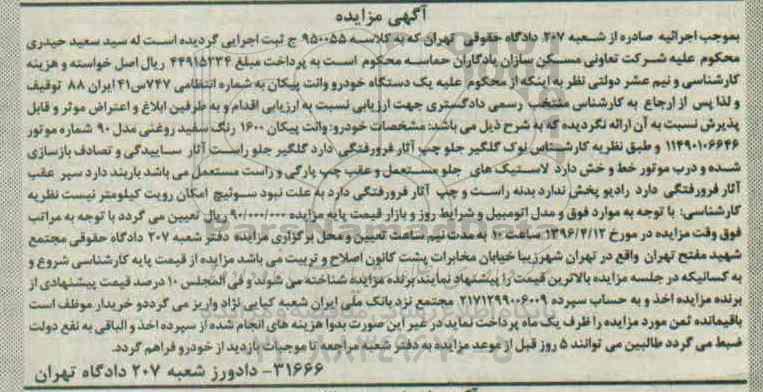 آگهی مزایده
بموجب اجرائیه صادره از شعبه ۲۰۷ دادگاه حقوقی تهران که به کلاسه ۹۵۰۰۵۵ ج ثبت اجرایی گردیده است له سید سعید حیدری
محکوم علیه شرکت تعاونی مسکن سازان یادگاران حماسه محکوم است به پرداخت مبلغ ۴۴۹۱۵۲۳۴ ریال اصل خواسته و هزینه
کارشناسی و نیم عشر دولتی نظر به اینکه از محکوم علیه یک دستگاه خودرو وانت پیکان به شماره انتظامی ۷۴۷س۴۱ ایران ۸۸ توقیف
و لذا پس از ارجاع به کارشناس منتخب رسمی دادگستری جهت ارزیابی نسبت به ارزیابی اقدام و به طرفین ابلاغ و اعتراض موثر و قابل
پذیرش نسبت به آن ارائه نگردیده که به شرح ذیل می باشد: مشخصات خودرو: وانت پیکان ۱۶۰۰ رنگ سفید روغنی مدل ۹۰ شماره موتور
۱۱۴۹۰۱۰۶۶۴۶ و طبق نظریه کارشناس نوک گلگیر جلو چپ آثار فرورفتگی دارد گلگیر جلو راست آثار ساییدگی و تصادف بازسازی
شده و درب موتور خط و خش دارد لاستیک های جلو مستعمل و عقب چپ پارگی و راست مستعمل می باشد باربند دارد سپر عقب
آثار فرورفتگی دارد رادیو پخش ندارد بدنه راست و چپ آثار فرورفتگی دارد به علت نبود سوئیچ امکان رویت کیلومتر نیست نظریه
کارشناسی: با توجه به موارد فوق و مدل اتومبیل و شرایط روز و بازار قیمت پایه مزایده ۹۰/۰۰۰/۰۰۰ ریال تعیین می گردد با توجه به مراتب
فوق وقت مزایده در مورخ ۱۳۹۶/۴/۱۲ ساعت ۱۰ به مدت نیم ساعت تعیین و محل برگزاری مزایده دفتر شعبه ۲۰۷ دادگاه حقوقی مجتمع
شهید مفتح تهران واقع در تهران شهرزیبا خیابان مخابرات پشت کانون اصلاح و تربیت می باشد مزایده از قیمت پایه کارشناسی شروع و
به کسانیکه در جلسه مزایده بالاترین قیمت را پیشنهاد نمایند برنده مزایده شناخته می شوند و فی المجلس ۱۰ درصد قیمت پیشنهادی از
برنده مزایده اخذ و به حساب سپرده ۲۱۷۱۲۹۹۰۰۶۰۰۹ مجتمع نزد بانک ملی ایران شعبه کیایی نژاد واریز می گرددو خریدار موظف است
باقیمانده ثمن مورد مزایده را ظرف یک ماه پرداخت نماید در غیر این صورت بدوا هزینه های انجام شده از سپرده اخذ و الباقی به نفع دولت
ضبط می گردد طالبین می توانند ۵ روز قبل از موعد مزایده به دفتر شعبه مراجعه تا موجبات بازدید از خودرو فراهم گردد.
۳۱۶۶۶- دادورز شعبه ۲۰۷ دادگاه تهران